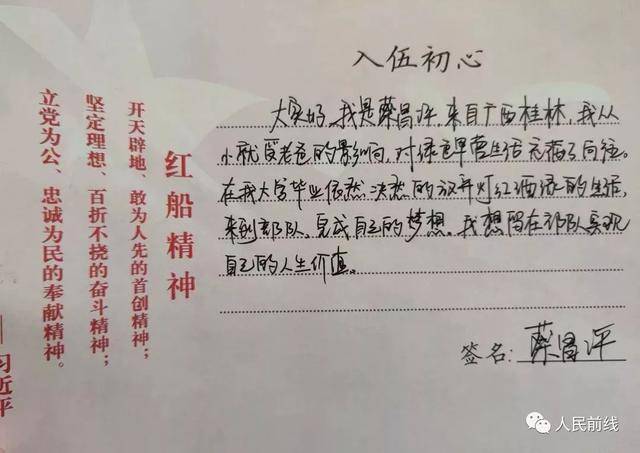 红船精神
开天辟地、敢为人先的首创精神；
坚定理想、百折不挠的奋斗精神；
立党为公、忠诚为民的奉献精神。
——习近平
入伍初心
大家好，我是蔡昌评，来自广西桂林，我从
小就受老爸的影响，对绿色军营生活充满了向往。
在我大学毕业依然决然的放弃灯红酒绿的生活，
来到部队，完成自己的梦想。我想留在部队实现
自己的人生价值。
签名：蔡昌评
人民前线